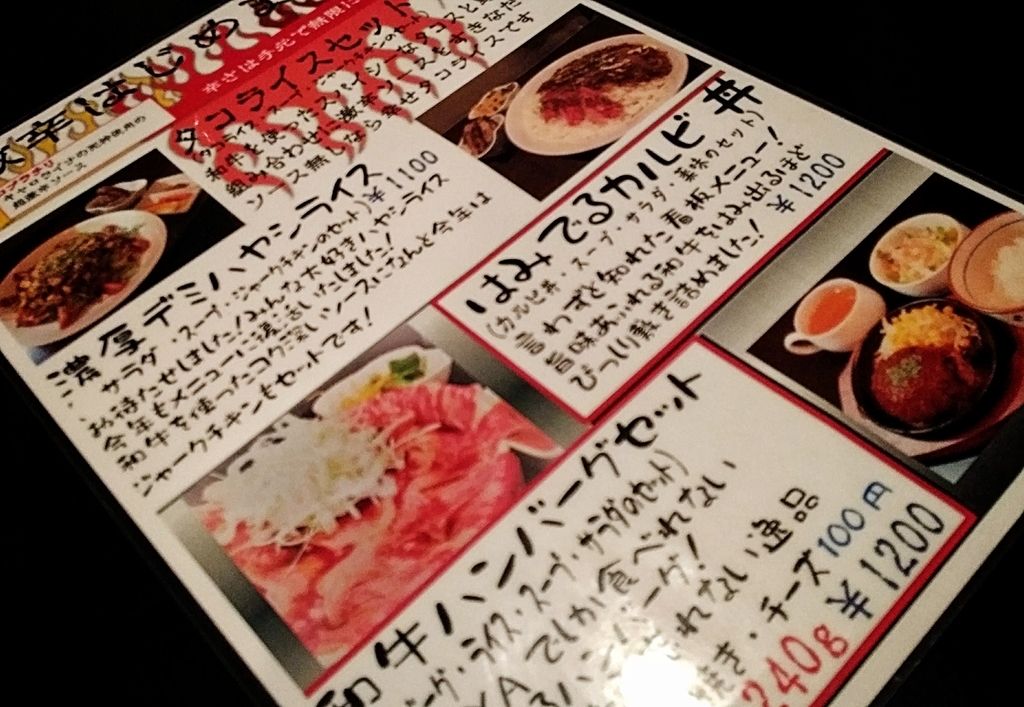 辛はじめま
辛さは手元で無限に
超激辛ソース
タコライスセット
和牛を使ったスパイシーなタコスと
組み合わせに激辛ソースをすきなだ
濃厚デミハヤシライス
サラダ・スープ・ジャークチキンのセット) ¥1100
お待たせしました!みんな大好きハヤシライス
今年もメニューに復活いたしました!
和牛を使ったコク深いソースになんと今年は
ジャークチキンもセットです!
はみでるカルビ丼
(カルビ丼・スープ・サラダ・薬味のセット)
言わずと知れた看板メニュー!
旨味あふれる和牛をはみ出るほど
びっしり敷き詰めました! ¥1200
和牛ハンバーグセット
ーグ・ライス・スープ・サラダのセット)
でしか食べれない
ハンバーグ!
れない逸品
焼き・チーズ100円
240g ¥1200